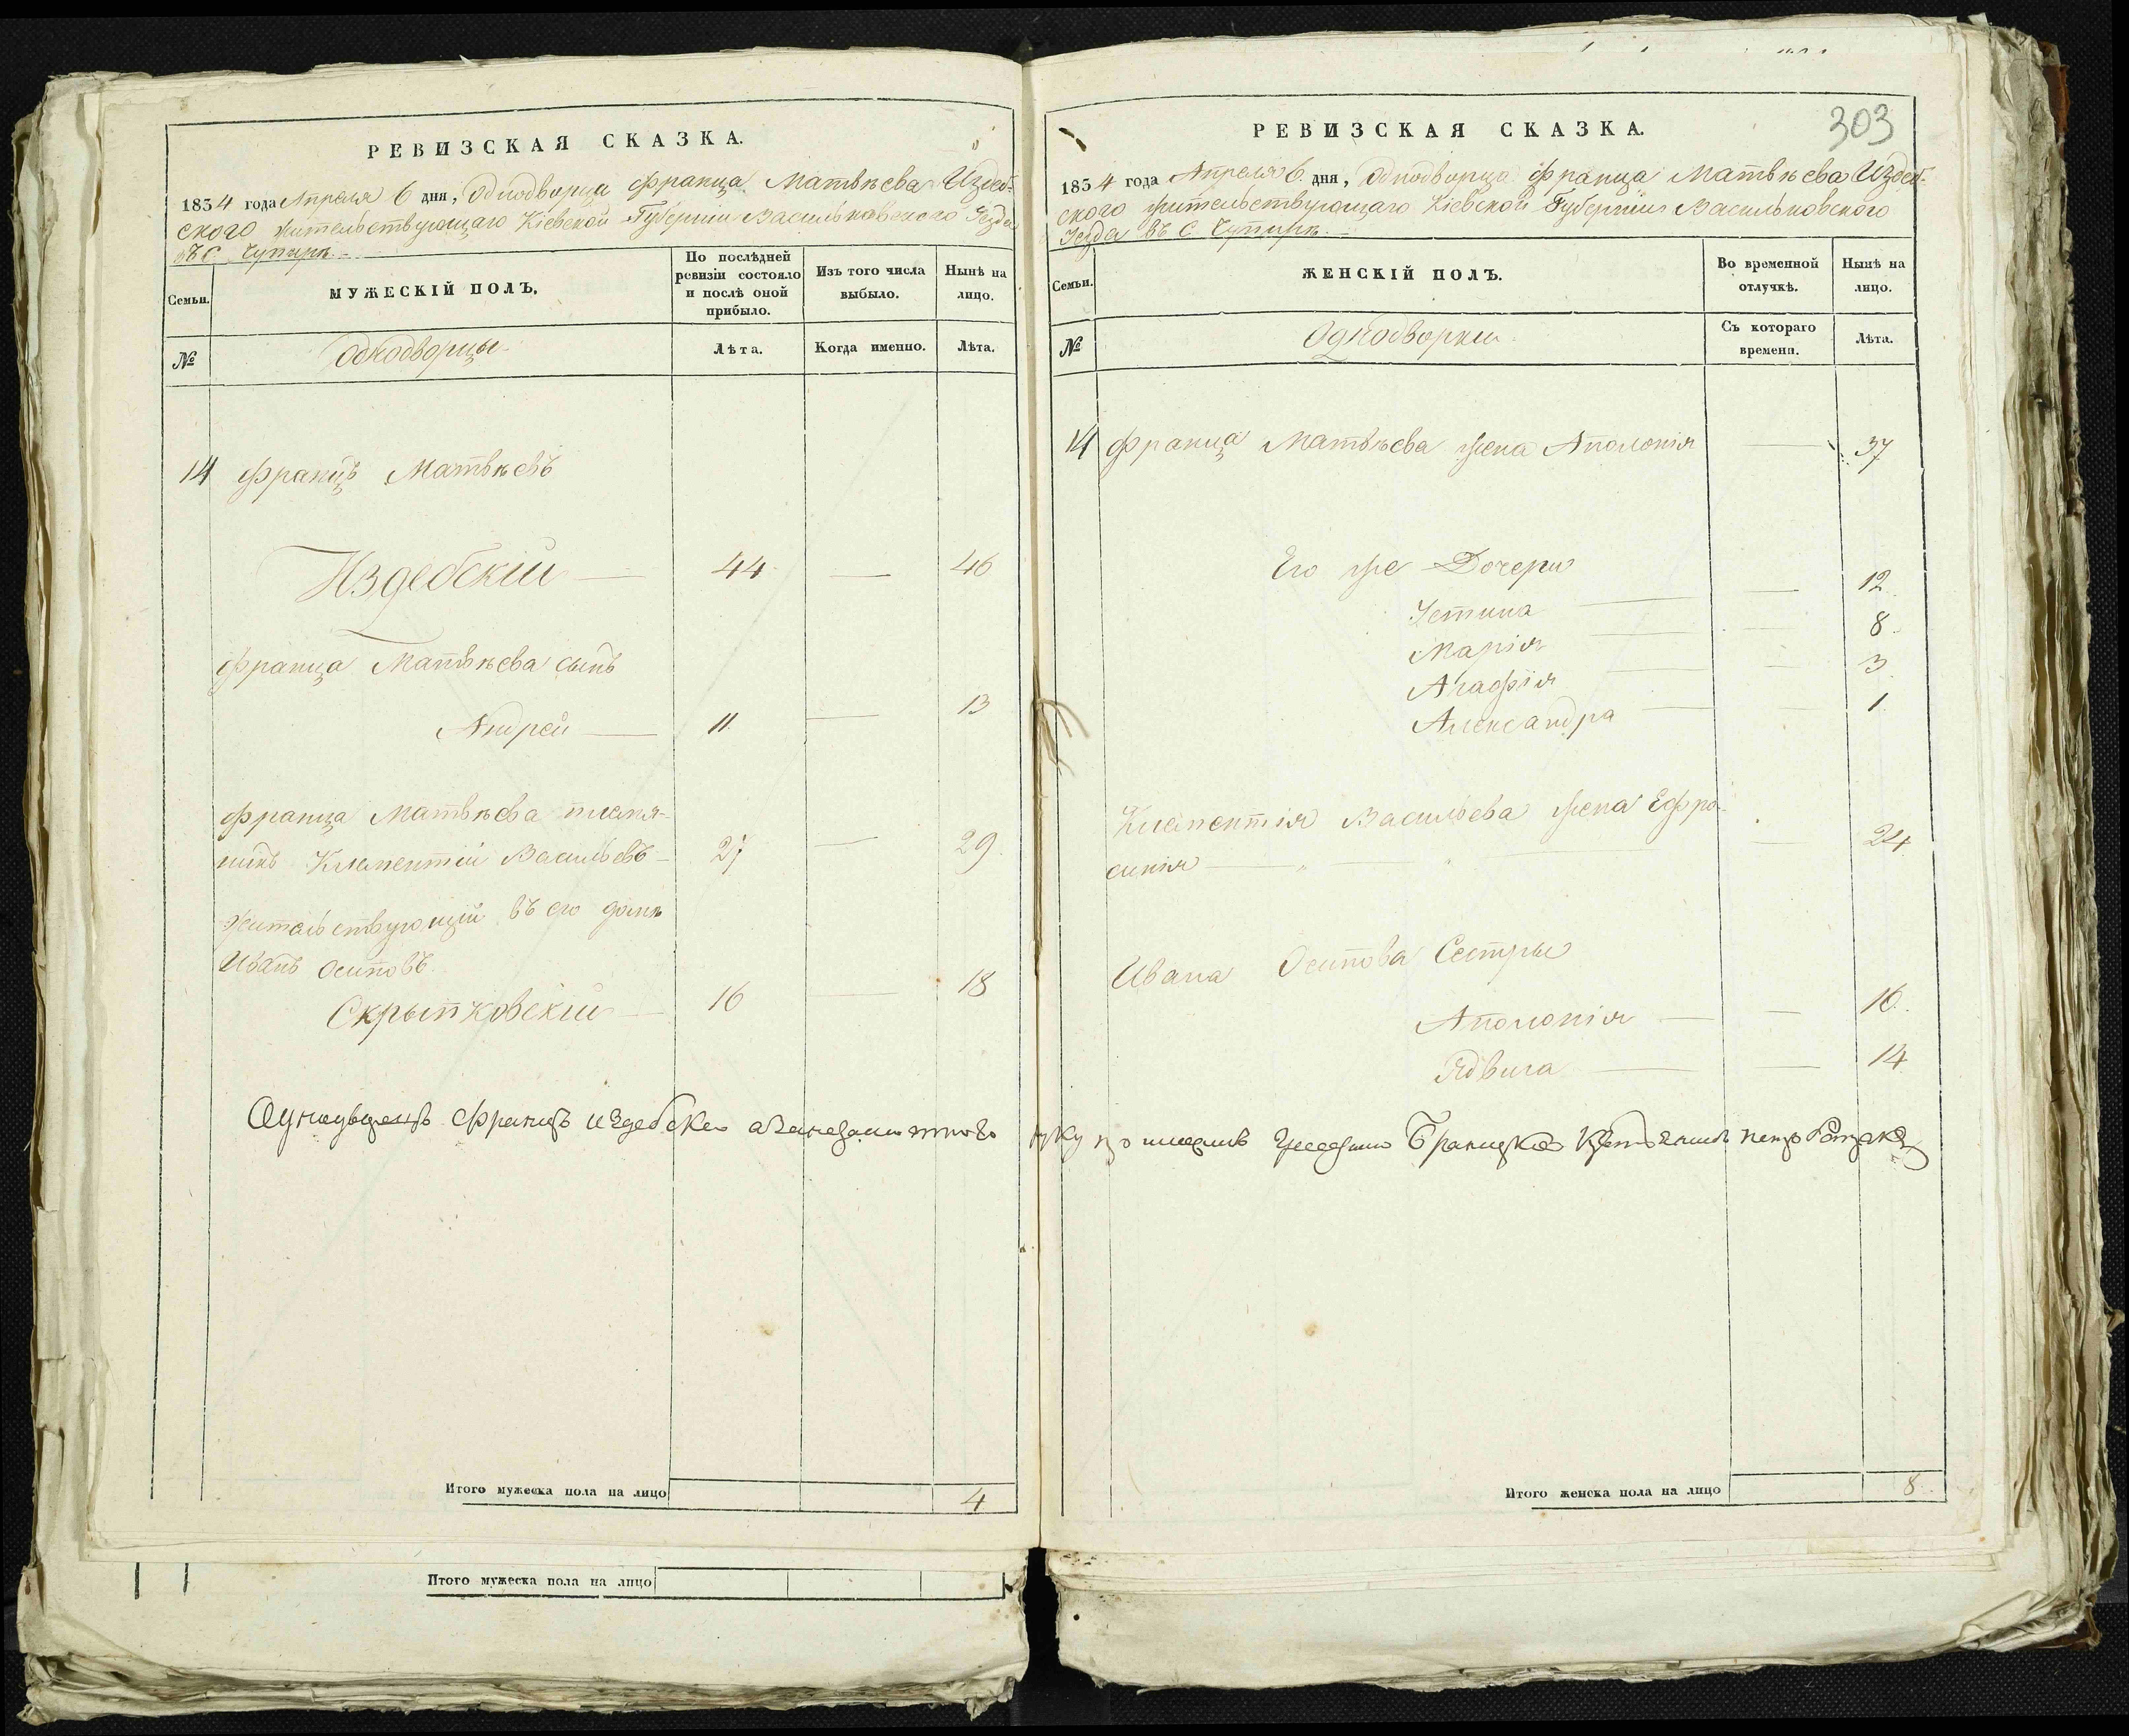 РЕВИЗСКАЯ СКАЗКА.
1834 года Апреля 6 дня, Однодворца Франца Матвѣева Издеб-
ского жительствующаго Кіевской Губерніи Васильковскаго Уезда
въ С.
Семьи.
МУЖЕСКІЙ ПОЛЪ.
По послѣдней
ревизіи состояло
и послѣ оной
прибыло.
Изъ того числа
выбыло.
Нынѣ на
лицо.
№
Однодворцы
Лѣта.
Когда именно.
Лѣта.
14 Францъ Матвѣевъ
Издебскій — 44 — 46
Франца Матвѣева сынъ
Андрей — 11. — 13
Франца Матвѣева племя-
никъ Клементій Васильевъ — 27 — 29.
Жительствующій въ его домѣ
Иванъ Осиповъ
Скрыпковскій — 16 — 18
Францъ Издебски
Итого мужеска пола на лицо 4
Итого мужеска пола на лицо
303
РЕВИЗСКАЯ СКАЗКА.
1834 года Апреля 6 дня, Однодворца Франца Матвѣева Издеб-
ского жительствующаго Кіевской Губерніи Васильковского
Уезда въ С.
Семьи.
ЖЕНСКІЙ ПОЛЪ.
Во временной
отлучкѣ.
Нынѣ на
лицо.
№
Однодворки
Съ котораго
времени.
Лѣта.
14 Франца Матвѣева жена Аполонія — 37
Его же Дочери
Устина — — 12.
Марія — — 8.
Агафія — — 3.
Александра — — 1.
Клементія Васильева жена Ефро-
синія — — 24.
Ивана Осипова Сестры
Аполонія — — 16.
Ядвига — — 14
Итого женска пола на лицо 8